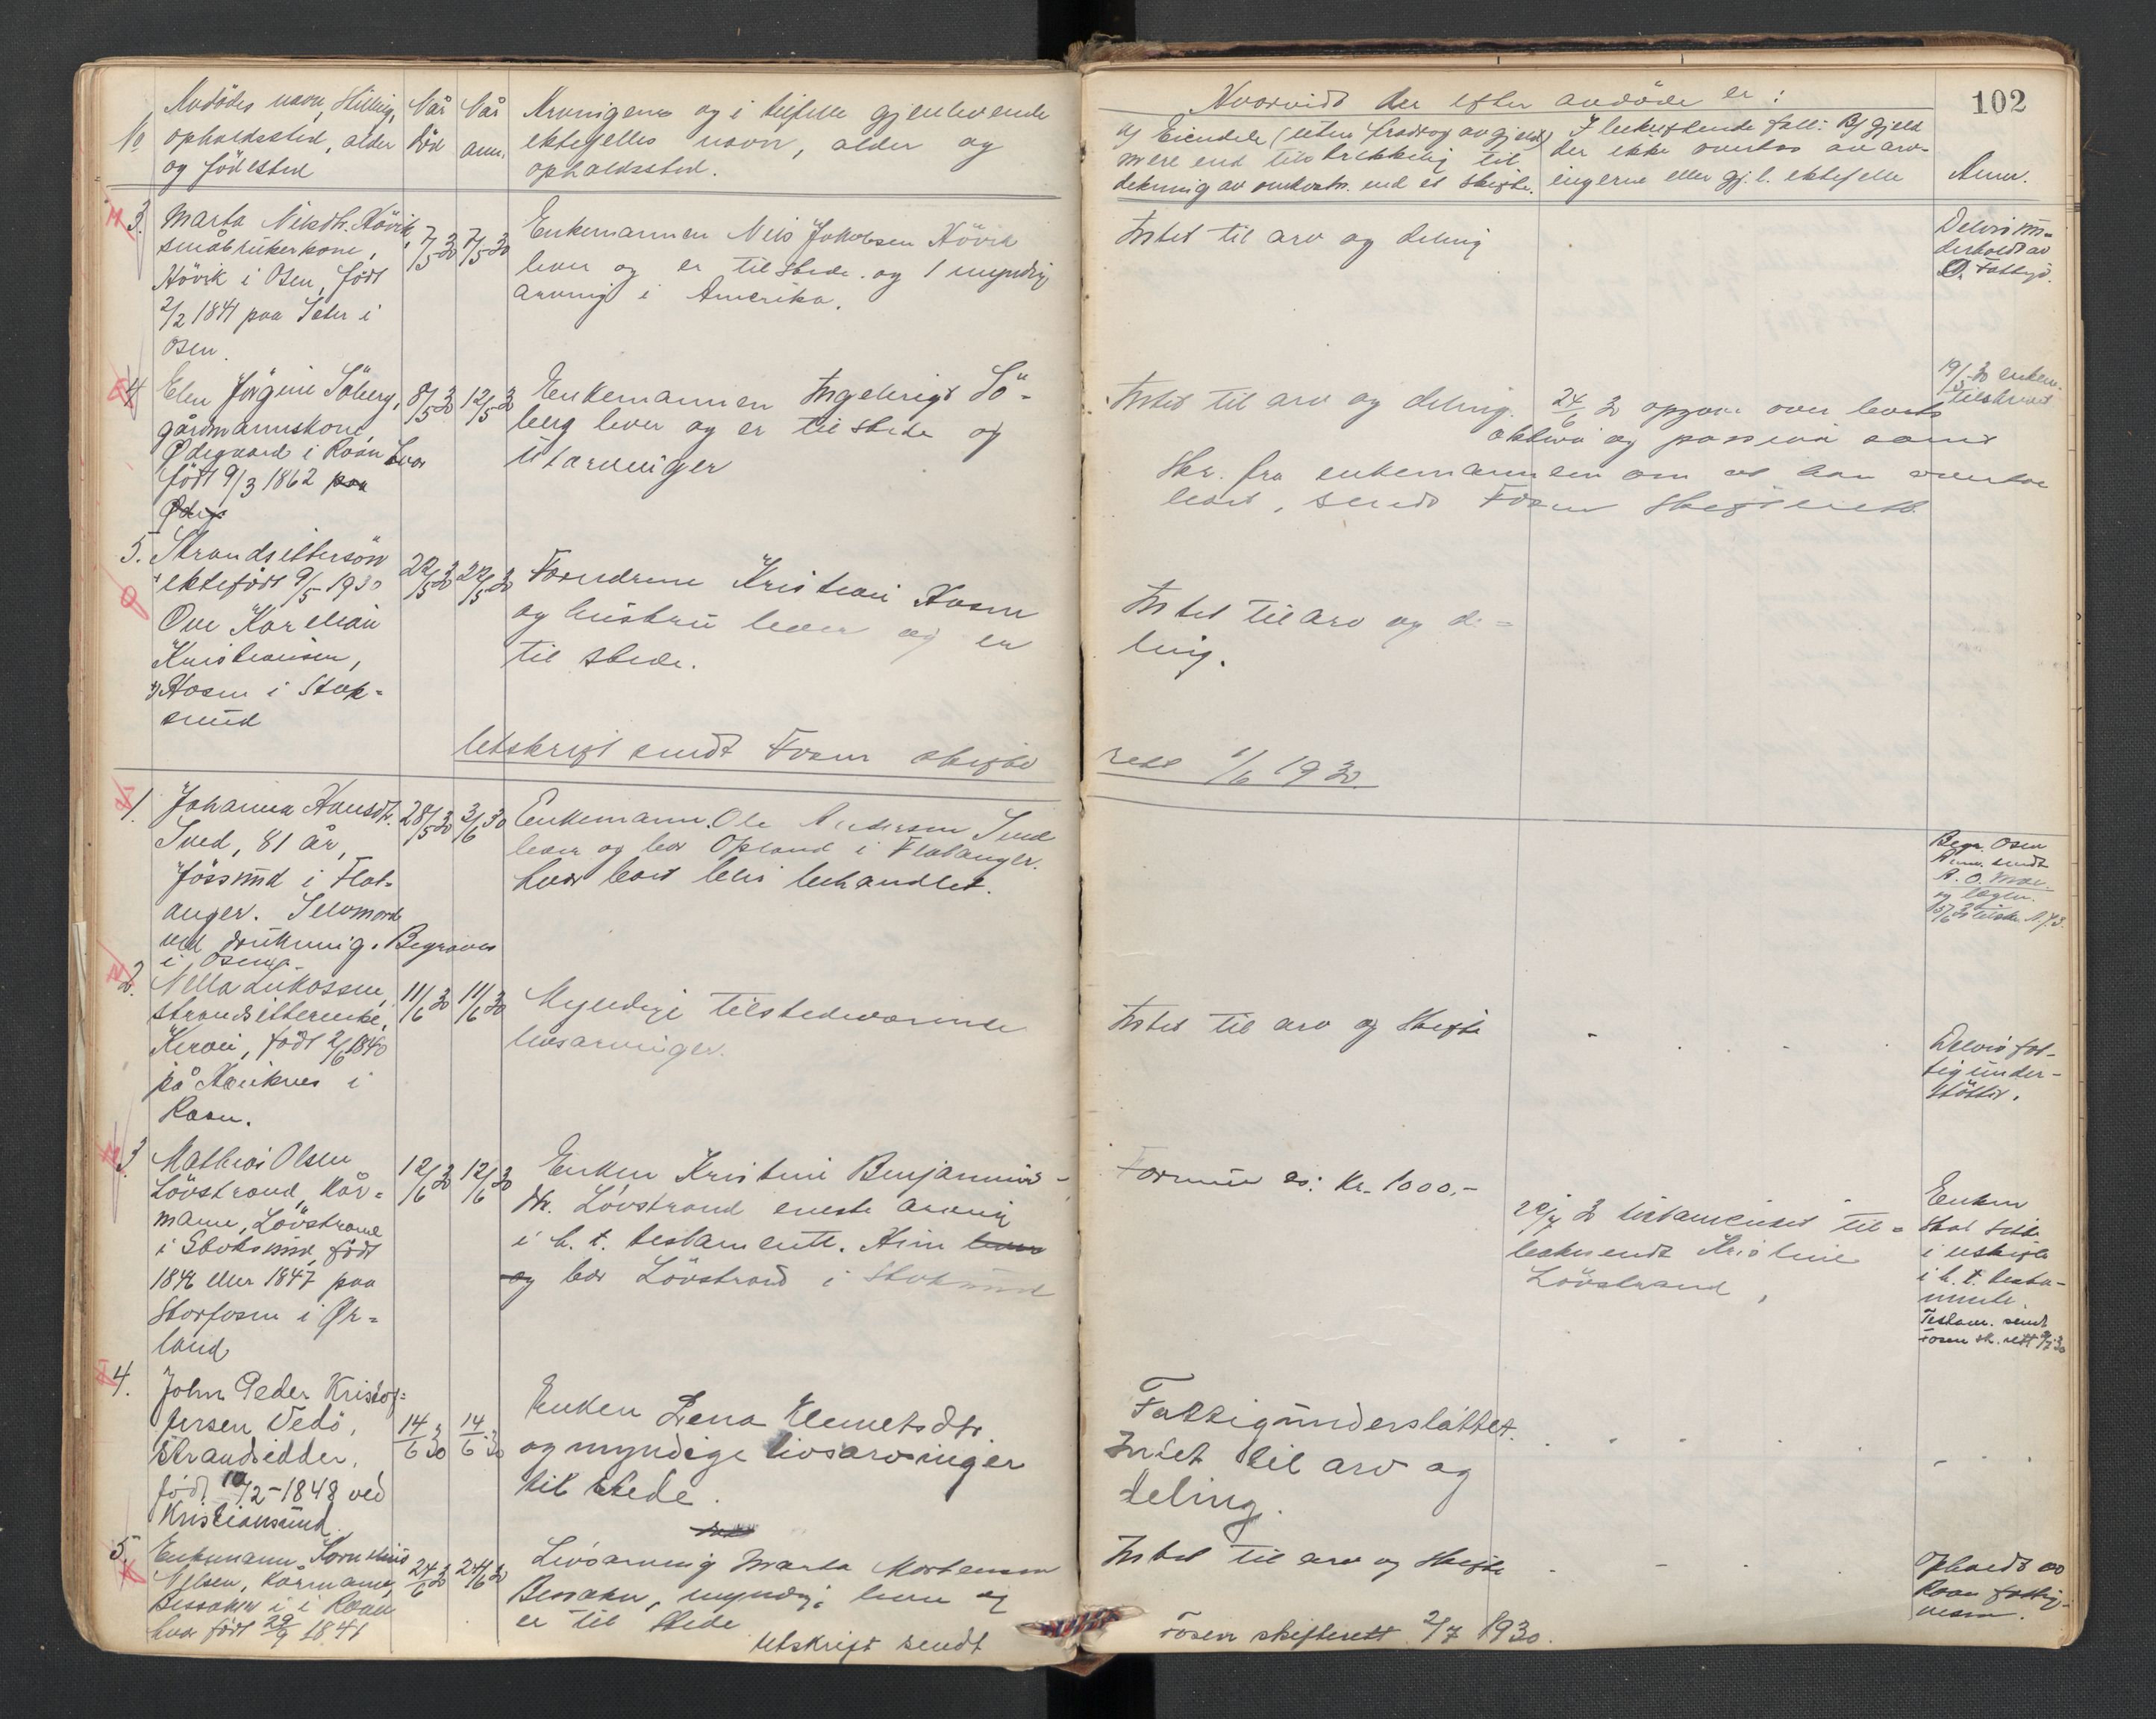 102
No
Avdödes navn, stilling,
opholdssted, alder
og födested
Når
död
Når
anm.
Arvingens og i tilfelle gjenlevende
ektefelles navn, alder og
opholdssted.
Hvorvidt der efter avdöde er:
a) Eiendele (uten fradrag av gjeld)
mere end tilstrekkelig til
dekning av omkostn. ved et skifte.
I bekreftende fall: B) gjeld
der ikke overtas av arv-
ingerne eller gj.l. ektefelle
Anm.
3.
Marta Nilsdtr. Hövik,
småbrukerkone,
Hövik i Osen, födt
2/2 1841 paa Seter i
Osen.
7/5 30
7/5 30
Enkemannen Nils Jakobsen Hövik
lever og er tilstede og 1 myndig
arving i Amerika.
Intet til arv og deling
Delvis un-
derholdt av
O. Fattigv.
4
Elen Jörgine Söberg,
gårdmannskone
Ødegaard i Roan hvor
födt 9/3 1862 paa
Ødeg
8/5 30
12/5 30
Enkemannen Ingebrigt Sö-
berg lever og er tilstede og
utarvinger
Intet til arv og deling.
24/6 30 opgave over boets
aktiva og passiva samt
Skr. fra enkemannen om at han overtar
boet, sendt Fosen Skifterett
19/5 30 enkem.
tilskrevet
5.
Strandsittersön
ektefödt 9/5 1930
Ove Karelian
Kristiansen,
Hosen i Stok-
sund
22/5 30
22/5 30
Foreldrene Kristian Hosen
og hustru lever og er
til stede.
Intet til arv og de-
ling.
Utskrift sendt Fosen skifte
rett 1/6 1930.
1.
Johanna Hansdtr.
Sved, 81 år,
Jössund i Flat-
anger. Selvmord
ved drukning. Begraves
i Osen.
28/5 30
3/6 30
Enkemann Ole Andersen Sved
lever og bor Opland i Flatanger.
hvor boet blir behandlet.
Begr. Osen
Anm. sendt
2.
Nella Lukassen,
strandsitterenke,
Kirvei, födt 2/6 1840
på Hauknes i
Roan.
11/6 30
11/6 30
Myndige tilstedeværende
livsarvinger.
Intet til arv og skifte
Delvis fat-
tigunder-
stöttet.
3
Mathias Olsen
Lövstrand, Kår-
mann, Lövstrand
i Stoksund, födt
1846 eller 1847 paa
Storfosen i Ør-
land
12/6 30
12/6 30
Enken Kristine Benjamins-
dtr. Lövstrand eneste arving
i h. t. testamente. Hun lever
og bor Lövstrand i Stoksund
Formue ca: Kr. 1000,-
testamentet til-
bakesendt Kristine
Lövstrand,
Enken
skal sitte
i uskifte
i h. t. testa-
mente.
Testam. sendt
Fosen sk. rett
4.
John Peder Kristof-
fersen Vedö,
Strandsidder,
födt 10/2-1848 ved
Kristiansund.
14/6 30
14/6 30
Enken Lena Klemetsdtr.
og myndige livsarvinger
til stede.
Fattigunderstöttet.
Intet til arv og
deling.
5.
Enkemann Kornelius
Nilsen, Kårmann,
Bessaker i i Roan
hvor födt 29/9 1841
24/6 30
24/6 30
Livsarving Marta Mortensen
Bessaker, myndig, lever og
er til stede
Intet til arv og skifte
Opholdt av
Roan fattig-
vesen.
Utskrift sendt
Fosen skifterett 2/7 1930.